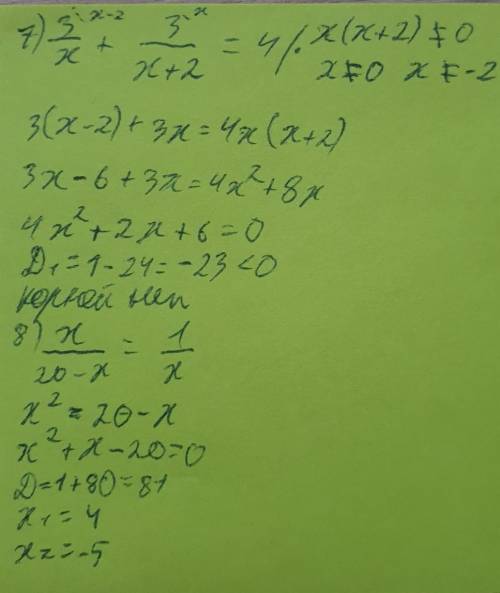 7) 3/x ·x-2 + 3/(x+2) ·x = 4 | · x(x+2) ≠ 0
x ≠ 0 x ≠ -2
3(x-2) + 3x = 4x(x+2)
3x - 6 + 3x = 4x² + 8x
4x² + 2x + 6 = 0
D₁ = 1 - 24 = -23 < 0
корней нет
8) x/(20-x) = 1/x
x² = 20 - x
x² + x - 20 = 0
D = 1 + 80 = 81
x₁ = 4
x₂ = -5